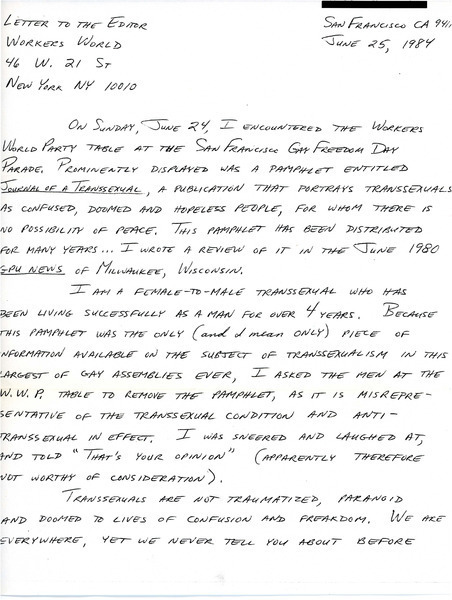 Letter to the Editor
San Francisco CA 941
Workers World
June 25, 1984
46 W. 21 St
New York NY 10010
On Sunday, June 24, I encountered the Workers
World Party table at the San Francisco Gay Freedom Day
Parade. Prominently displayed was a pamphlet entitled
Journal of a Transsexual, a publication that portrays transsexuals
as confused, doomed and hopeless people, for whom there is
no possibility of peace. This pamphlet has been distributed
for many years... I wrote a review of it in the June 1980
GPU News of Milwaukee, Wisconsin.
I am a female-to-male transsexual who has
been living successfully as a man for over 4 years. Because
this pamphlet was the only (and I mean ONLY) piece of
nformation available on the subject of transsexualism in this
largest of gay assemblies ever, I asked the men at the
W.W.P. table to remove the pamphlet, as it is misrepre-
sentative of the transsexual condition and anti-
transsexual in effect. I was sneered and laughed at,
and told "That's your opinion" (apparently therefore
not worthy of consideration).
Transsexuals are not traumatized, paranoid
and doomed to lives of confusion and freakdom. We are
everywhere, yet we never tell you about before